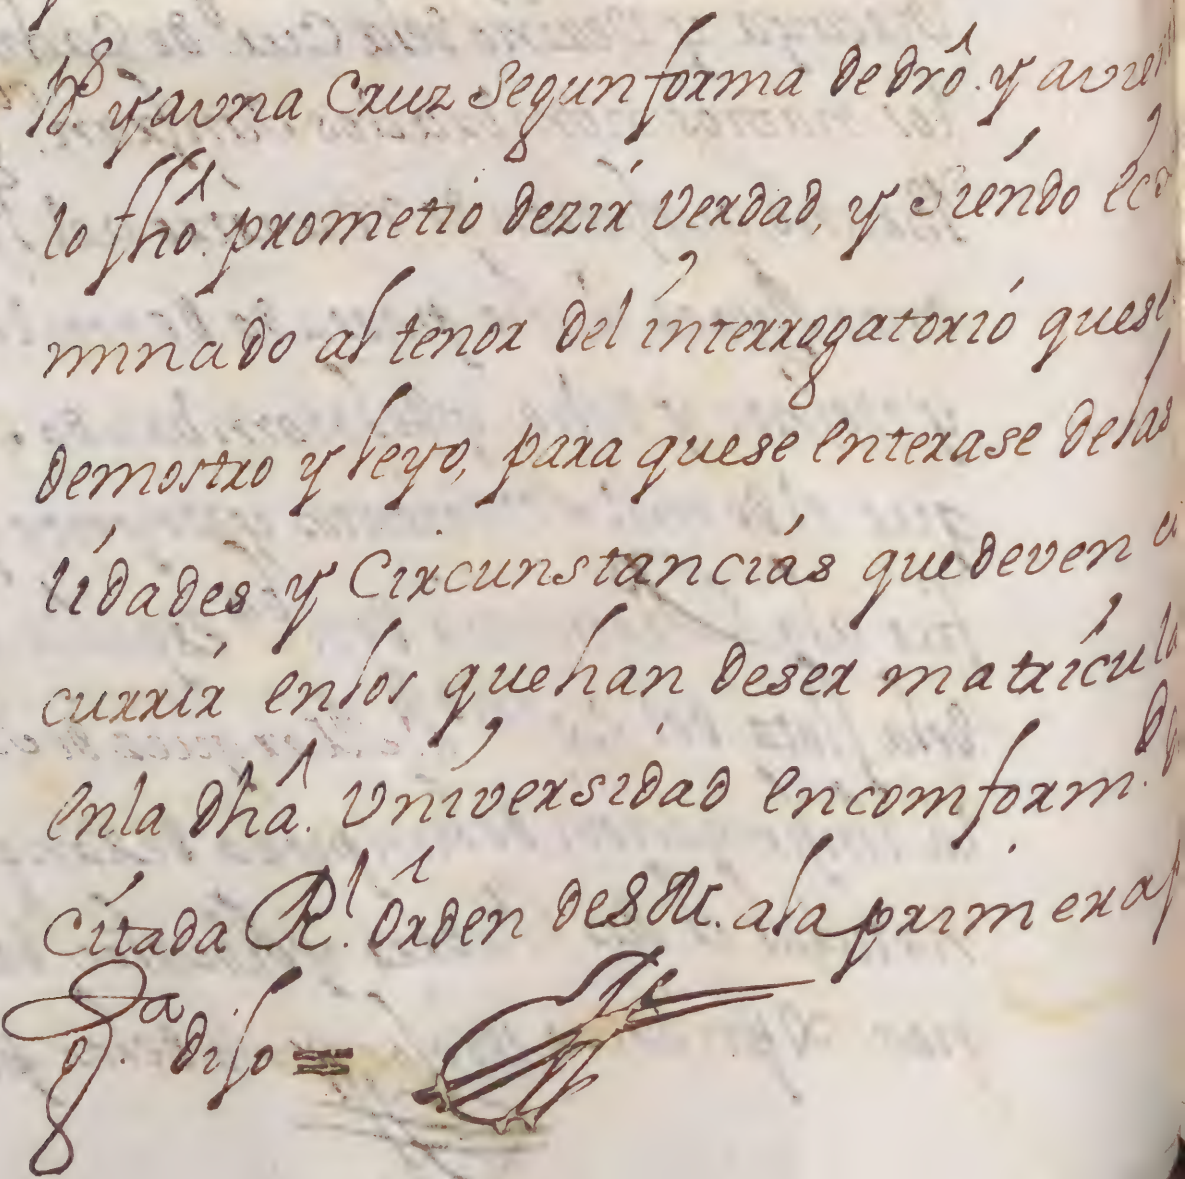 Ds. y auna Cruz Segun forma de drô. y avien
lo fhô. prometio dezir verdad, y Siendo ecsa
minado al tenor del interrogatorio quese
demostro y leyo, para quese enterase de las
lidades y Circunstancias quedeven
currir enlos quehan deser matricula
enla dhâ. Universidad encomform.d
Citada Rl. Orden de S. M. ala primera
ga. diso =